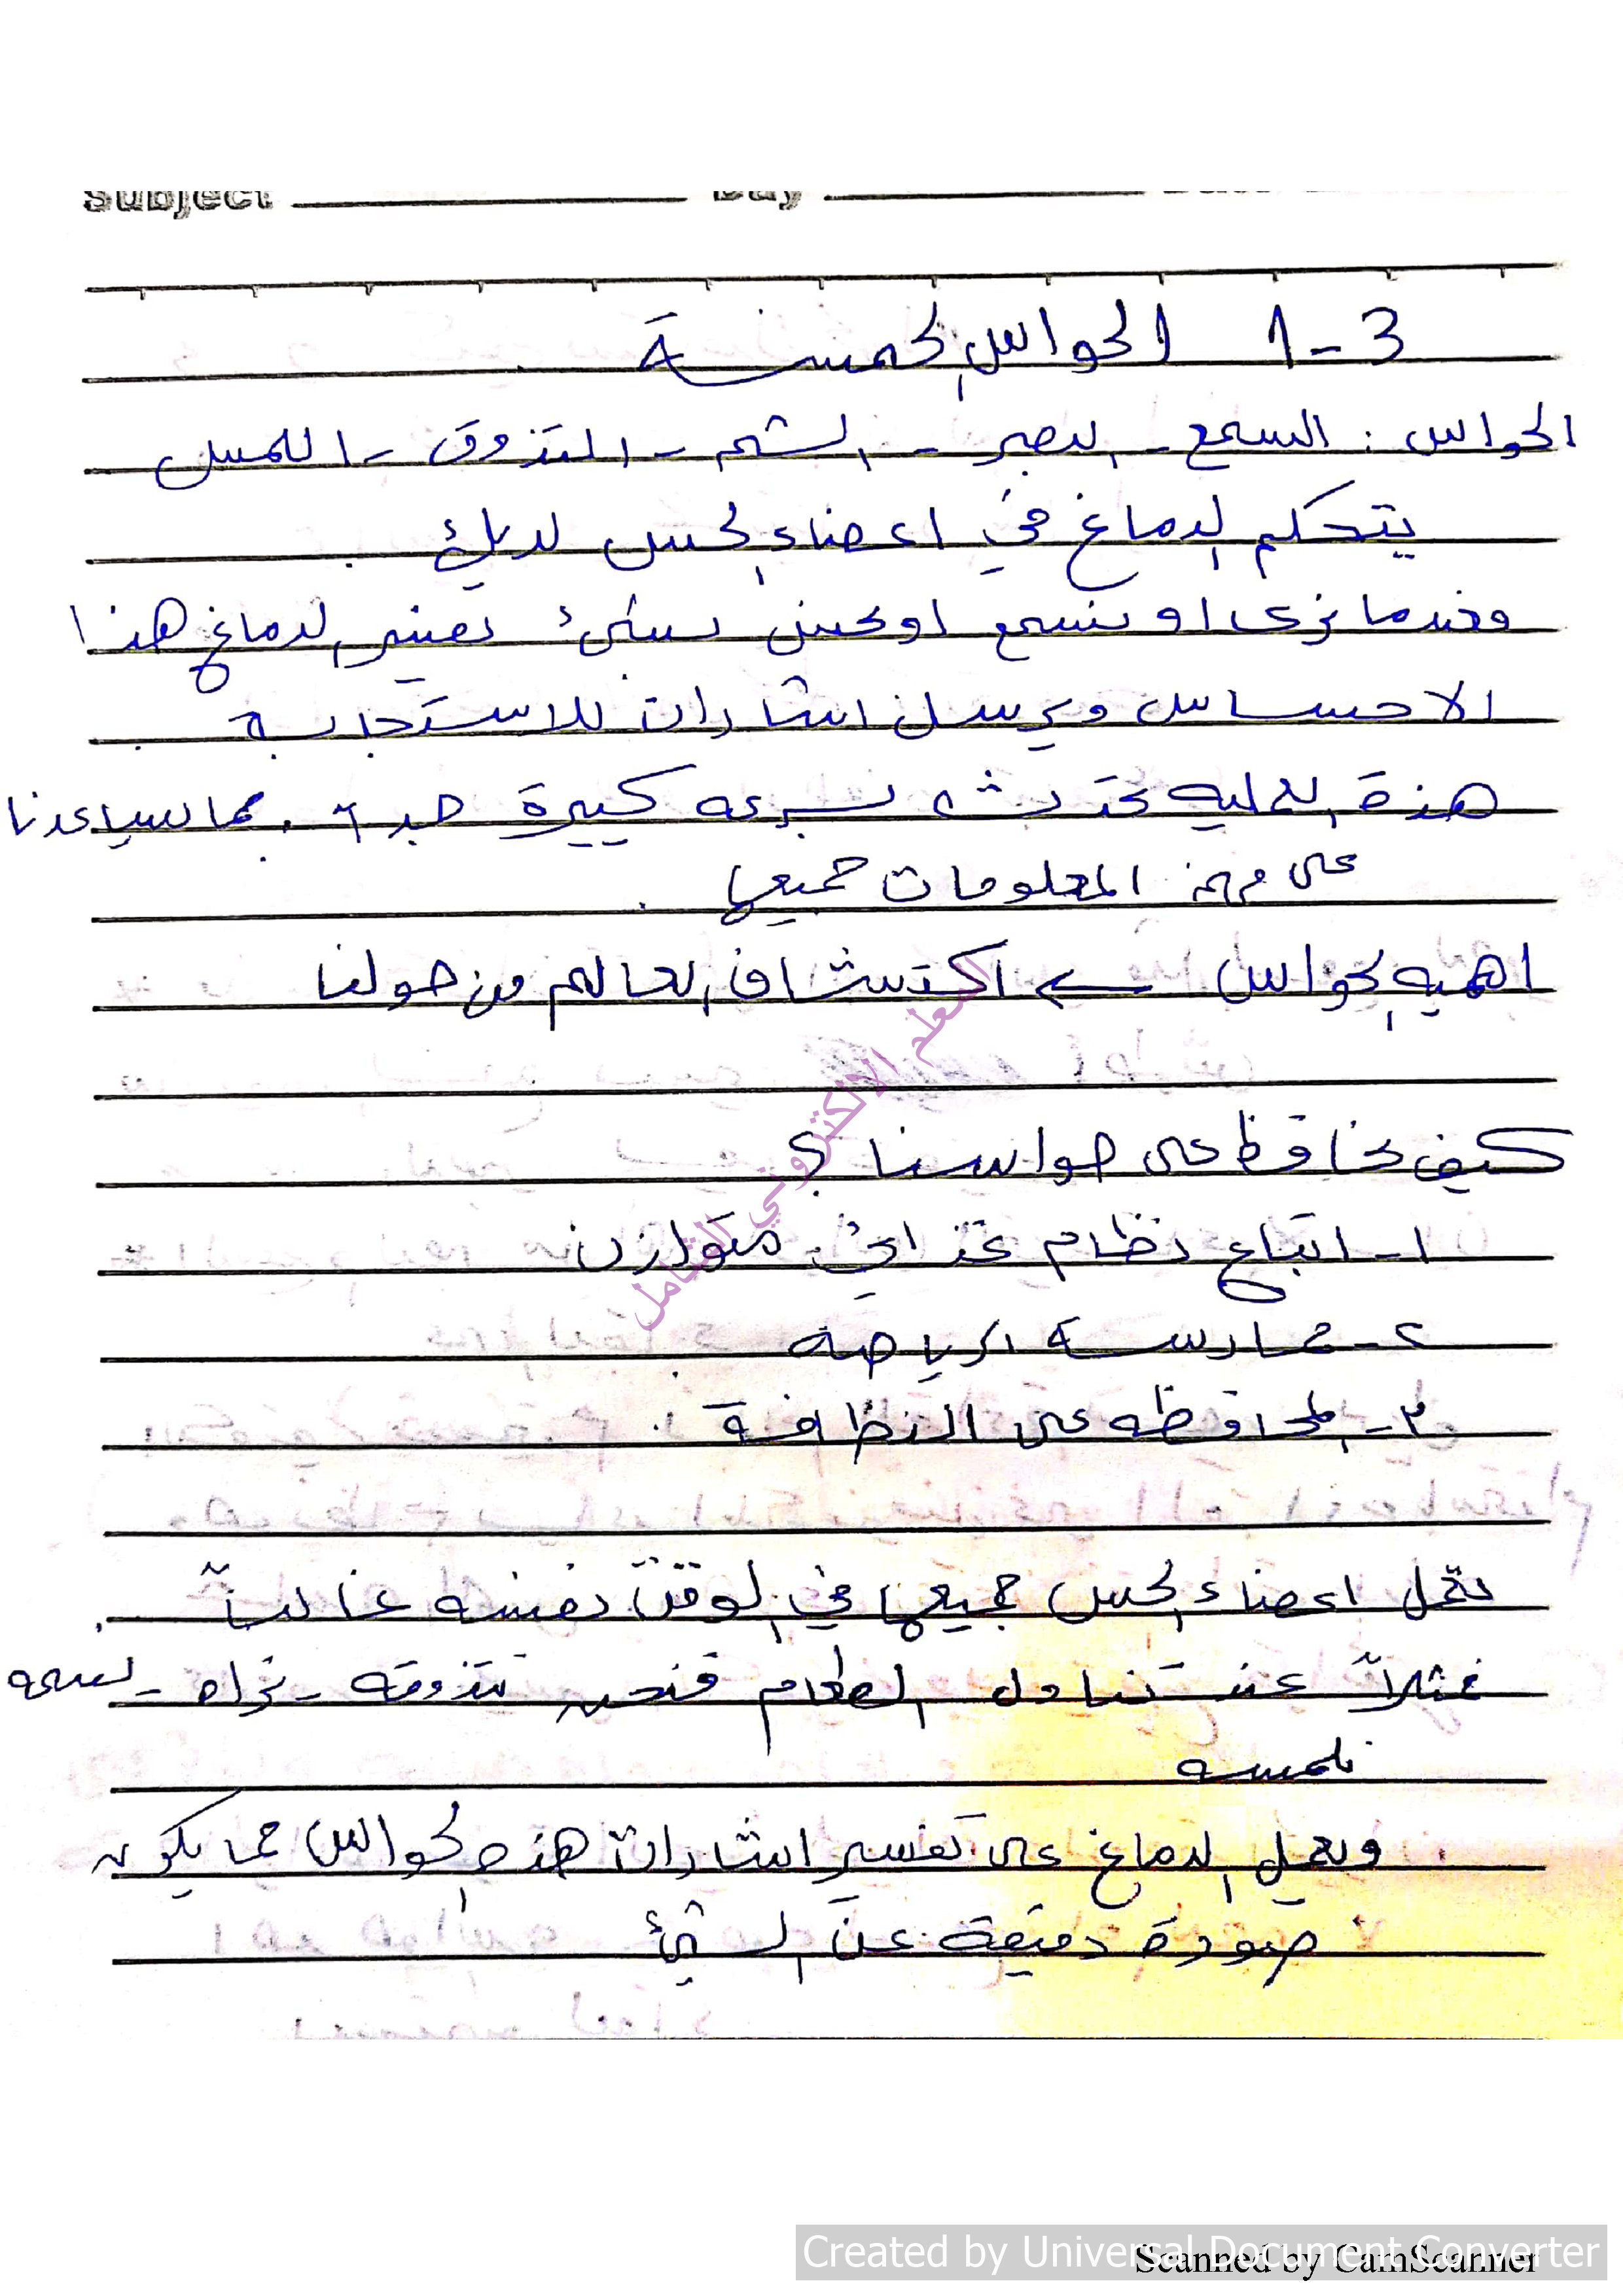 Subject Day
3-1 الحواس الخمسة
الحواس : السمع - البصر - الشم - التذوق - اللمس
يتحكم الدماغ في اعضاء الحس لديك .
وعندما نرى او نسمع او نحس بشئ يفسر الدماغ هذا
الاحساس ويرسل اشارات للاستجابة .
هذة العمليه تحدث بسرعه كبيرة جدا . مما يساعدنا
على فهم المعلومات جميعها .
اهميه الحواس ← اكتشاف العالم من حولنا
كيف نحافظ على حواسنا ؟
١- اتباع نظام غذائي متوازن
٢- ممارسة الرياضه
٣- المحافظه على النظافة .
تعمل اعضاء الحس جميعها في الوقت نفسه غالباً .
فمثلاً عند تناول الطعام فنحن نتذوقه - نراه - نشمه
نلمسه
ويعمل الدماغ على تفسير اشارات هذه الحواس مما يكون
صورة دقيقة عن الشئ
المعلم الالكتروني الشامل
Created by Universal Document Converter
Scanned by CamScanner